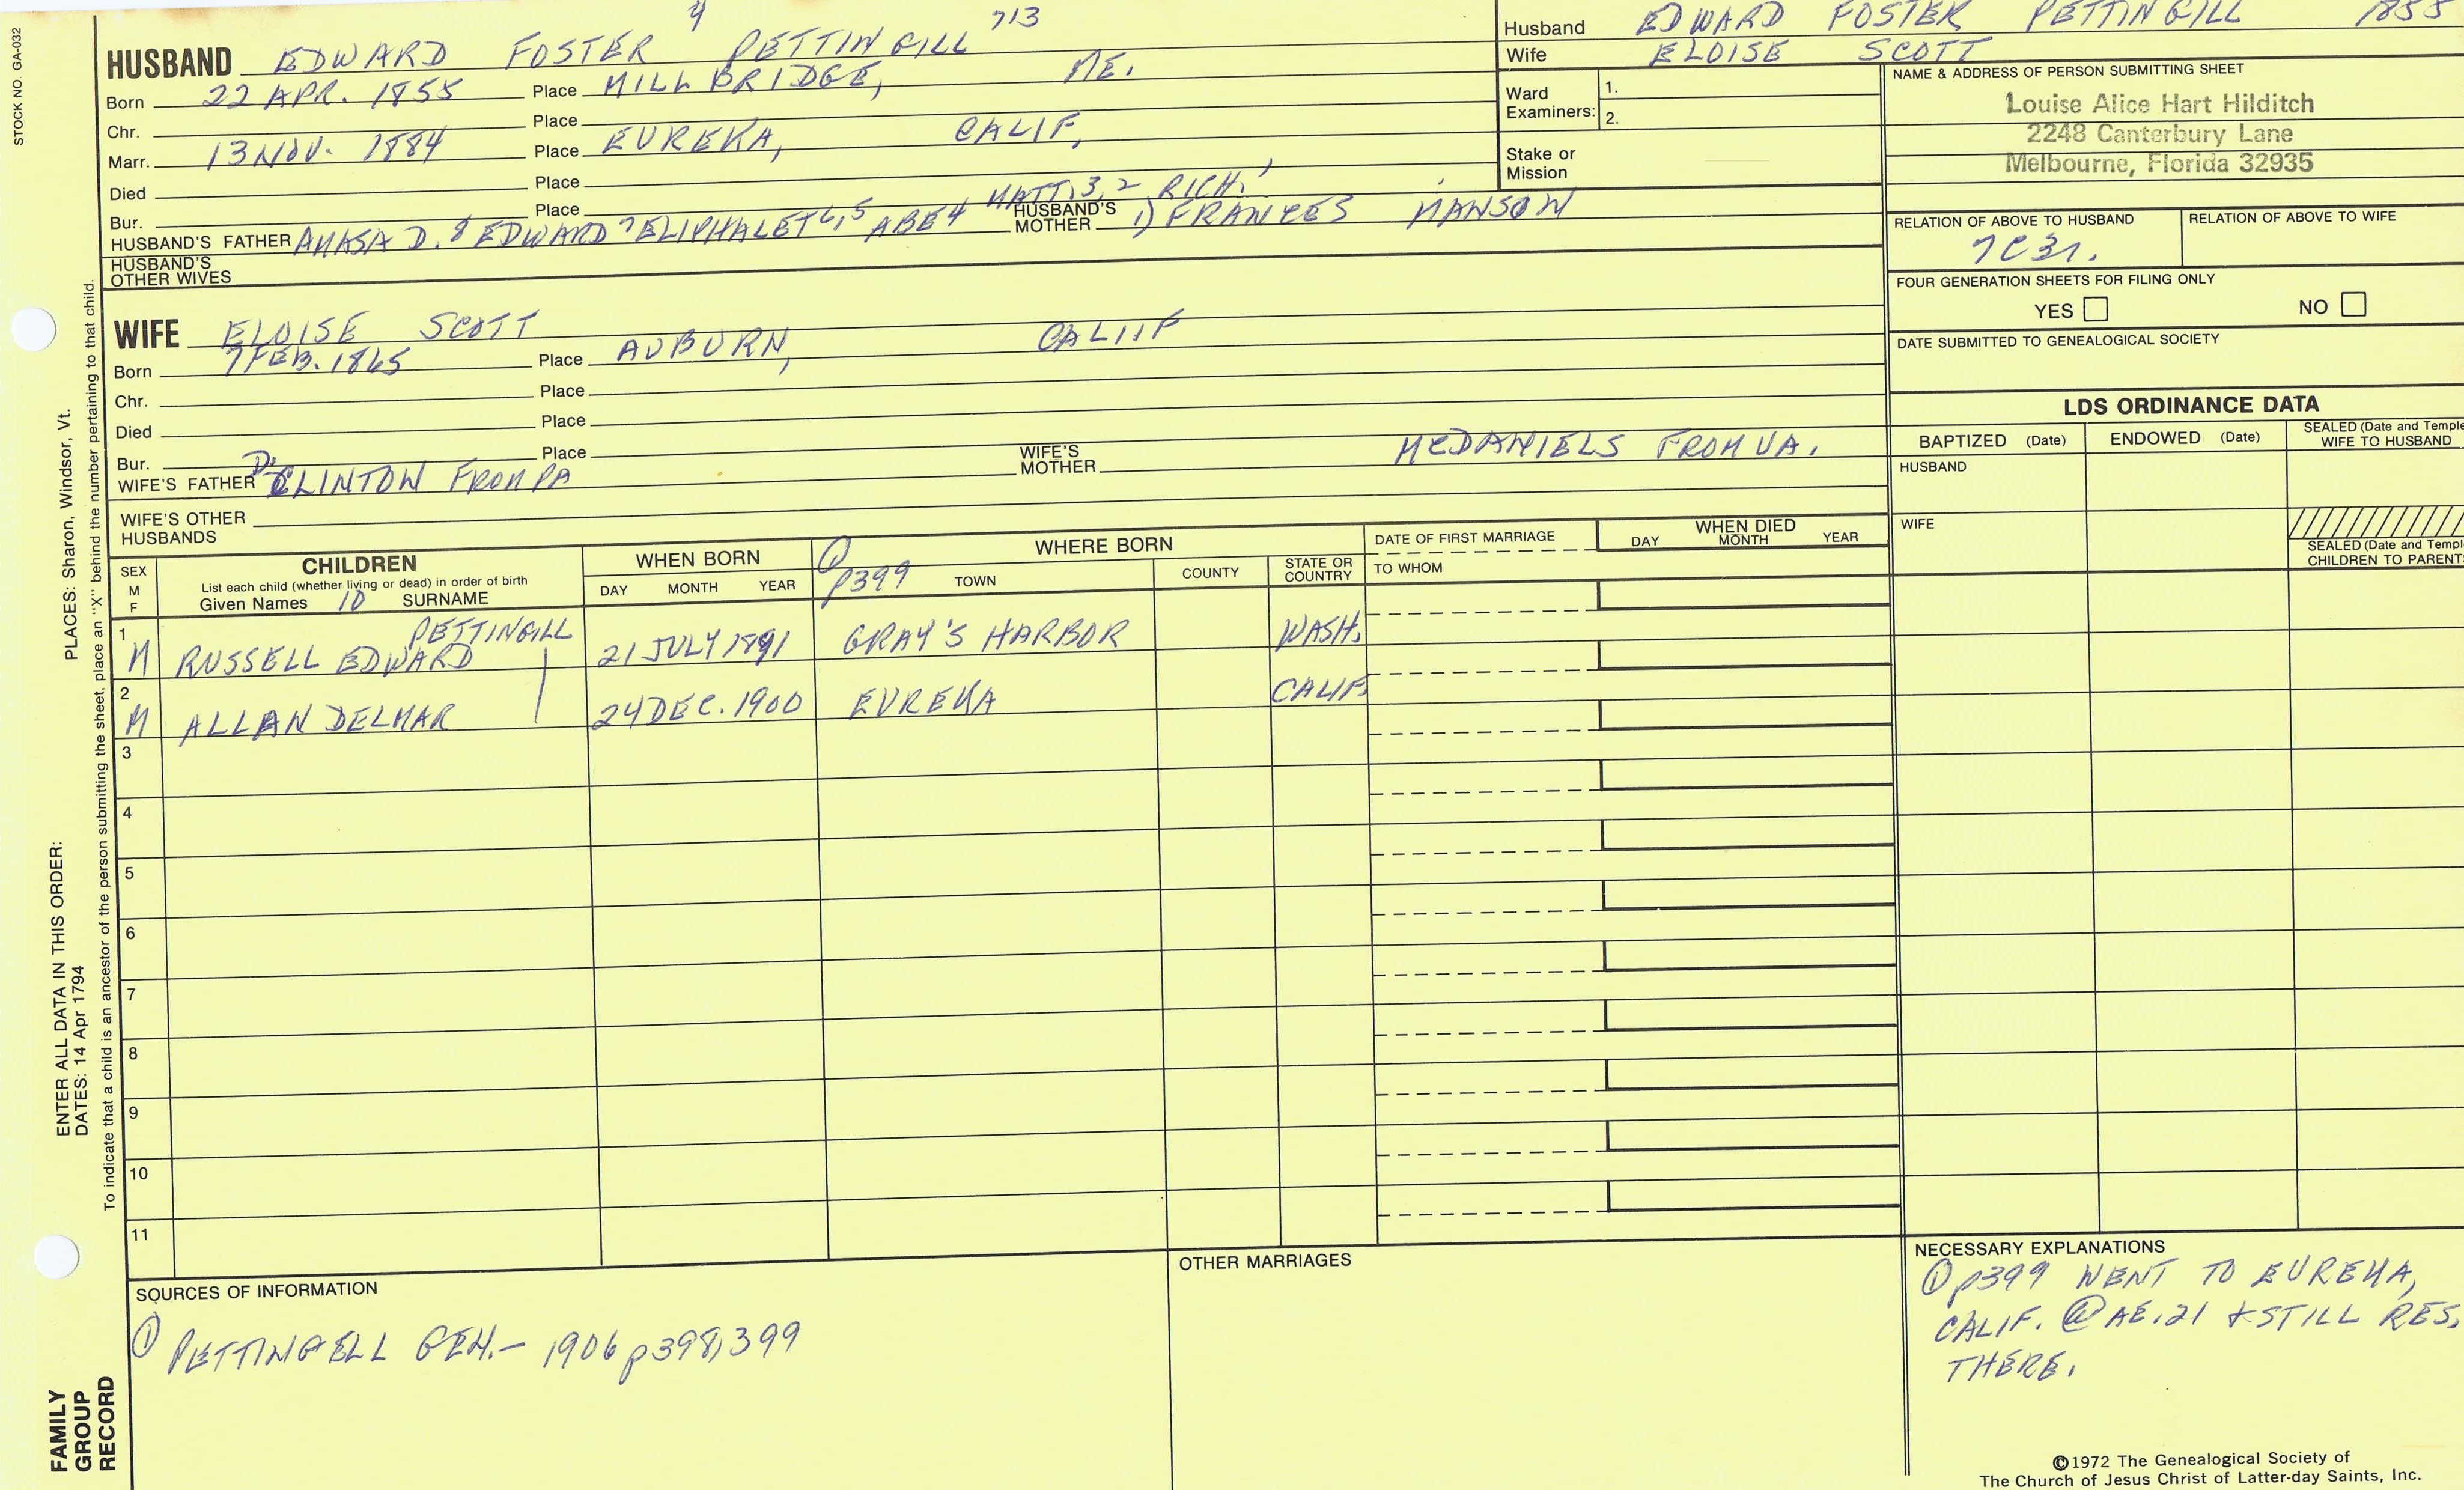 STOCK NO. GA-032
9 713
HUSBAND EDWARD FOSTER PETTINGILL
Born 22 APR. 1855 Place MILLBRIDGE, ME.
Chr. Place
Marr. 13 NOV. 1884 Place EUREKA, CALIF.
Died Place
Bur. Place
MATT. 3, 2 RICH. 1
HUSBAND'S FATHER AMASA D. 8 EDWARD 7 ELIPHALET 6, 5 ABE 4 HUSBAND'S MOTHER 1) FRANCES MANSON
HUSBAND'S OTHER WIVES
Husband EDWARD FOSTER PETTINGILL 1855
Wife ELOISE SCOTT
Ward Examiners: 1.
2.
Stake or Mission
NAME & ADDRESS OF PERSON SUBMITTING SHEET
Louise Alice Hart Hilditch
2248 Canterbury Lane
Melbourne, Florida 32935
RELATION OF ABOVE TO HUSBAND RELATION OF ABOVE TO WIFE
7C3r.
FOUR GENERATION SHEETS FOR FILING ONLY
YES NO
DATE SUBMITTED TO GENEALOGICAL SOCIETY
WIFE ELOISE SCOTT
Born 7 FEB. 1865 Place AUBURN, CALIF
Chr. Place
Died Place
Bur. Place
WIFE'S FATHER D. CLINTON FROM PA WIFE'S MOTHER MCDANIELS FROM VA.
WIFE'S OTHER HUSBANDS
LDS ORDINANCE DATA
BAPTIZED (Date) ENDOWED (Date) SEALED (Date and Temple) WIFE TO HUSBAND
HUSBAND
WIFE
SEALED (Date and Temple) CHILDREN TO PARENTS
SEX M F
CHILDREN
List each child (whether living or dead) in order of birth
Given Names 10 SURNAME
WHEN BORN
DAY MONTH YEAR
① p399
WHERE BORN
TOWN COUNTY STATE OR COUNTRY
DATE OF FIRST MARRIAGE
TO WHOM
WHEN DIED
DAY MONTH YEAR
PETTINGILL
1 M RUSSELL EDWARD 21 JULY 1891 GRAY'S HARBOR WASH.
2 M ALLAN DELMAR 24 DEC. 1900 EUREKA CALIF.
3
4
5
6
7
8
9
10
11
SOURCES OF INFORMATION
① PETTINGELL GEN.- 1906 p398,399
OTHER MARRIAGES
NECESSARY EXPLANATIONS
① p399 WENT TO EUREKA,
CALIF. @ AE. 21 & STILL RES.
THERE.
©1972 The Genealogical Society of
The Church of Jesus Christ of Latter-day Saints, Inc.
PLACES: Sharon, Windsor, Vt.
ENTER ALL DATA IN THIS ORDER:
DATES: 14 Apr 1794
To indicate that a child is an ancestor of the person submitting the sheet, place an "X" behind the number pertaining to that child.
FAMILY
GROUP
RECORD